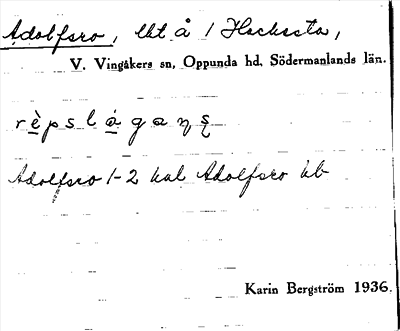 Adolfsro, lht å 1 Hacksta,
V. Vingåkers sn, Oppunda hd, Södermanlands län.
Adolfsro 1-2 kal Adolfsro hb
Karin Bergström 1936.